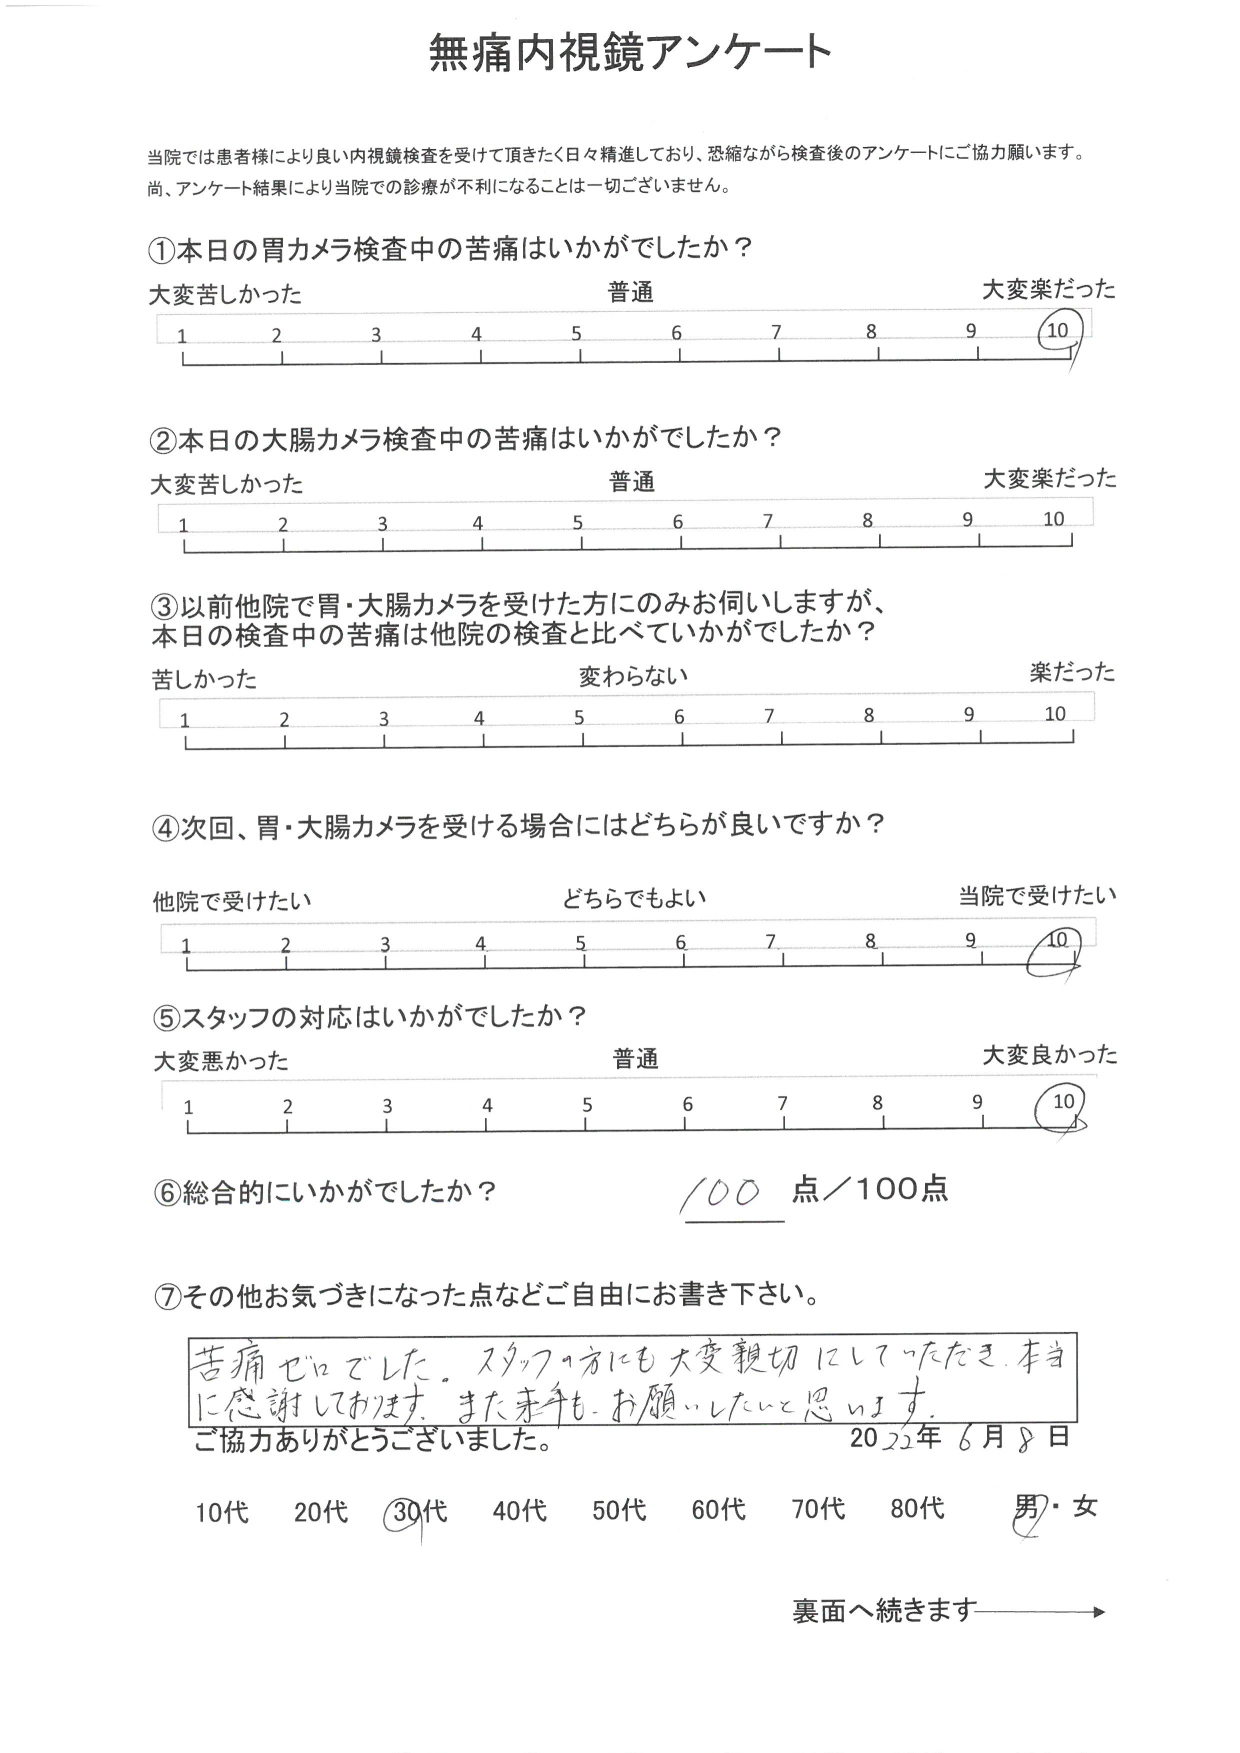 無痛内視鏡アンケート
当院では患者様により良い内視鏡検査を受けて頂きたく日々精進しており、恐縮ながら検査後のアンケートにご協力願います。
尚、アンケート結果により当院での診療が不利になることは一切ございません。
①本日の胃カメラ検査中の苦痛はいかがでしたか？
大変苦しかった 普通 大変楽だった
1 2 3 4 5 6 7 8 9 10
②本日の大腸カメラ検査中の苦痛はいかがでしたか？
大変苦しかった 普通 大変楽だった
1 2 3 4 5 6 7 8 9 10
③以前他院で胃・大腸カメラを受けた方にのみお伺いしますが、
本日の検査中の苦痛は他院の検査と比べていかがでしたか？
苦しかった 変わらない 楽だった
1 2 3 4 5 6 7 8 9 10
④次回、胃・大腸カメラを受ける場合にはどちらが良いですか？
他院で受けたい どちらでもよい 当院で受けたい
1 2 3 4 5 6 7 8 9 10
⑤スタッフの対応はいかがでしたか？
大変悪かった 普通 大変良かった
1 2 3 4 5 6 7 8 9 10
⑥総合的にいかがでしたか？ 100 点／100点
⑦その他お気づきになった点などご自由にお書き下さい。
苦痛ゼロでした。スタッフの方にも大変親切にしていただき、本当
に感謝しております。また来年も、お願いしたいと思います。
ご協力ありがとうございました。 2022年 6月 8日
10代 20代 30代 40代 50代 60代 70代 80代 男・女
裏面へ続きます